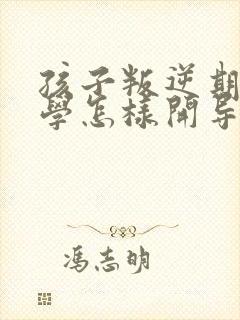 孩子叛逆期
學怎樣開导
冯志明